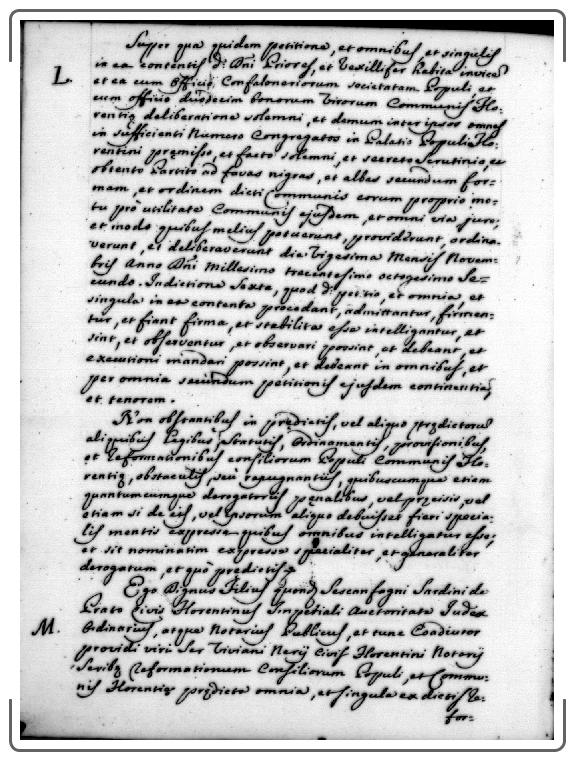 Super qua quidem petitione, et omnibus, et singulis
L. in ea contentis d: Dni Priores, et Vexillifer habita invicé
et ea cum Officio Confaloneriorum societatum Populi et
cum offitio duodecim bonorum Virorum Communis Flo-
rentię deliberatione solemni, et demum inter ipsos omnes
in sufficienti Numero Congregatos in Palatio Populi Flo-
rentini premisso, et facto solemni, et secreto scrutinio, et
obtento Partito ad fabas nigras, et albas secundum for-
mam, et ordinem dicti Communis eorum proprio mo-
tu prò utilitate Communis ejusdem, et omni via jure,
et modo quibus melius potuerunt, providerunt, ordina-
verunt, et deliberaverunt die Vigesima Mensis Novem-
bris Anno Dñi Millesimo trecentesimo octogesimo Se-
cundo. Indictione Sexta, quod d: petitio, et omnia, et
singula in ea contenta procedant, admittantur, firmen-
tur, et fiant firma, et stabilita esse intelligantur, et
sint, et observentur, et observari possint, et debeant, et
executioni mandari possint, et debeant in omnibus, et
per omnia secundum petitionis ejusdem continentiã,
et tenorem.
Non obstantibus in predictis, vel aliquo prędictorum
aliquibus Legibus, Statutis, Ordinamentis, provisionibus,
et Reformationibus consiliorum Populi Communis Flo-
rentię, obstaculis, seù repugnantiis, quibuscumque etiam
quantumcumque derogatoriis pęnalibus, vel pręcisis, vel
etiam si de eis, vel ipsorum aliquo debuisset fieri specia-
lis mentio expressa quibus omnibus intelligatur esse,
et sit nominatim expresse specialiter, et generaliter
derogatum, et quõ predictis
Ego Dignus Filius quond. Ser Sardini de
Prato Civis Florentinus Imperiali Auctoritate Iudex
M. Ordinarius, atque Notarius Publicus, et tunc Coadiutor
providi viri Ser Viviani Nerij Civis Florentini Notarij
Scribę Reformationum Consiliorum Populi, et Commu-
nis Florentię prędicta omnia, et singula ex dictis Re-
for-